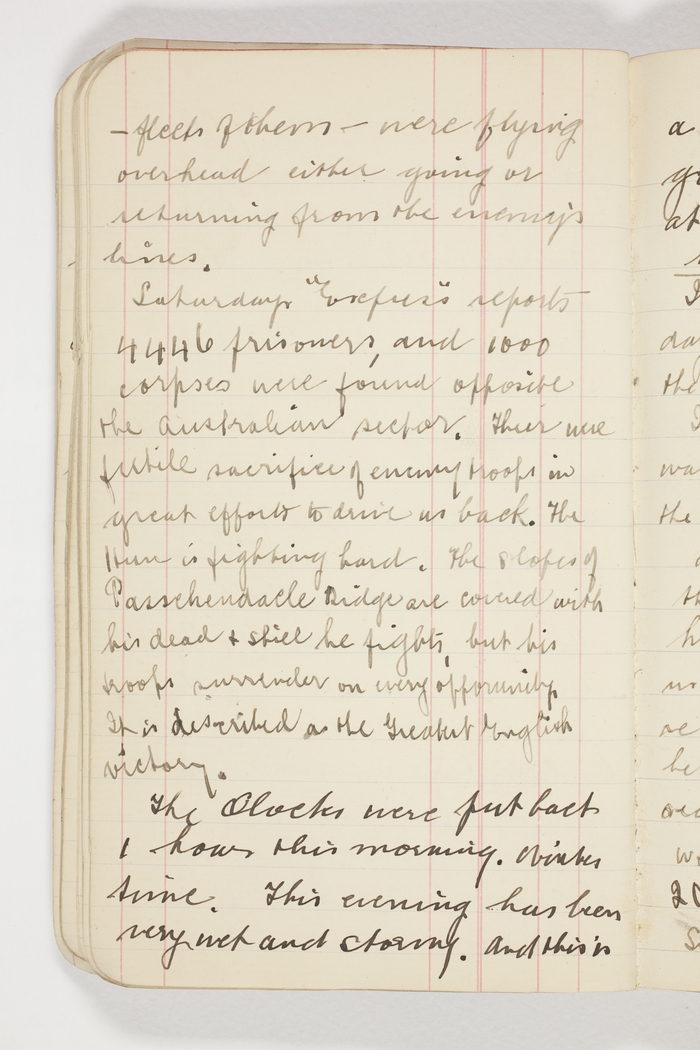 – fleets of them – were flying
overhead either going or
returning from the enemy's
lines.
Saturdays "Express" reports
4446 prisoners, and 1000
corpses were found opposite
the Australian sector. Their were
futile sacrifice of enemy troops in
great efforts to drive us back. The
Hun is fighting hard. The slopes of
Passchendaele Ridge are covered with
his dead & still he fights, but his
troops surrender on every opporunity.
It is described as the Greatest English
victory.
The Clocks were put back
1 hour this morning. Winter
time. This evening has been
very wet and stormy. And this is
a
at
day
the
wa
the
th
h
us
be
w
20
S